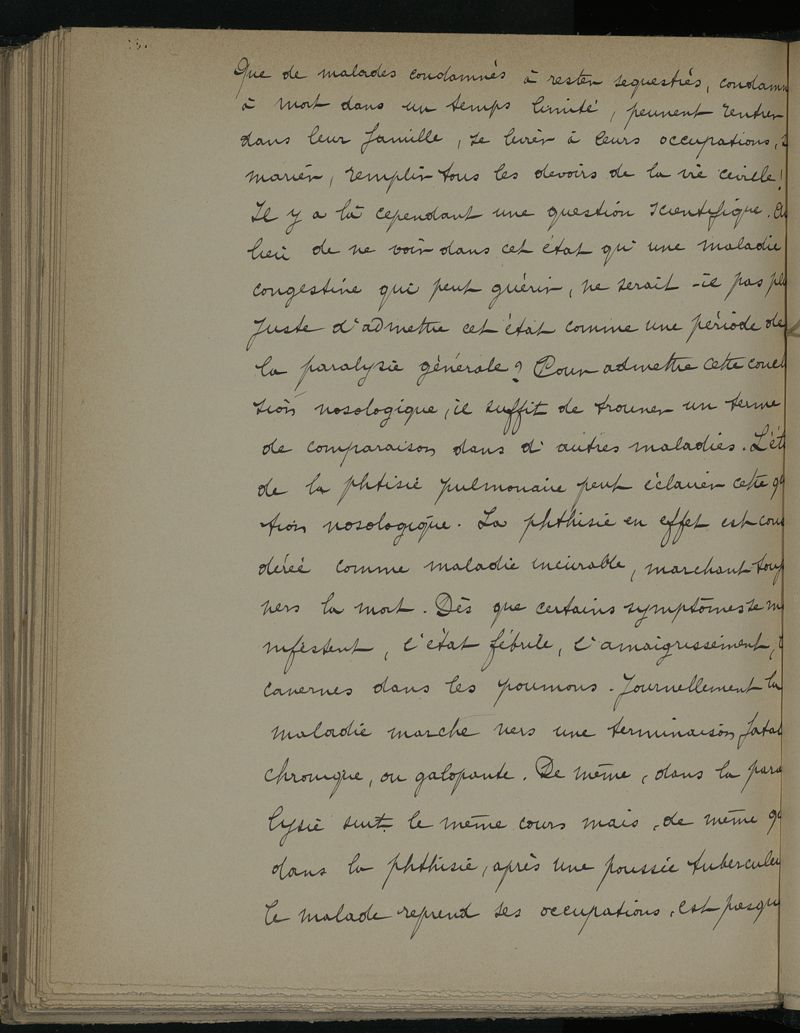 Que de malades condamnés à rester sequestrés, condamn
à mort dans un temps limité, peuvent rentrer
dans leur famille, se livrer à leurs occupations, s
marier, remplir tous les devoirs de la vie civile!
Il y a là cependant une question scientifique. Au
lieu de ne voir dans cet état qu'une maladie
congestive qui peut guérir, ne serait-il pas plu
juste d'admettre cet état comme une période de
la paralysie générale? Pour admettre cette
tion nosologique, il suffit de trouver un terme
de comparaison dans d'autres maladies. L'ét
de la phtisie pulmonaire peut éclairer cette q
tion nosologique. La phthisie en effet est cons
dérée comme maladie incurable, marchant touj
vers la mort. Dès que certains symptômes se m
nifestent, l'état fébrile, l'amaigrissement,
cavernes dans les poumons. Journellement la
maladie marche vers une terminaison fatal
chronique, ou galopante. De même, dans la para
lysie suit le même cours mais, de même q
dans la phthisie, après une poussée tubercule
le malade reprend ses occupations, est presqu